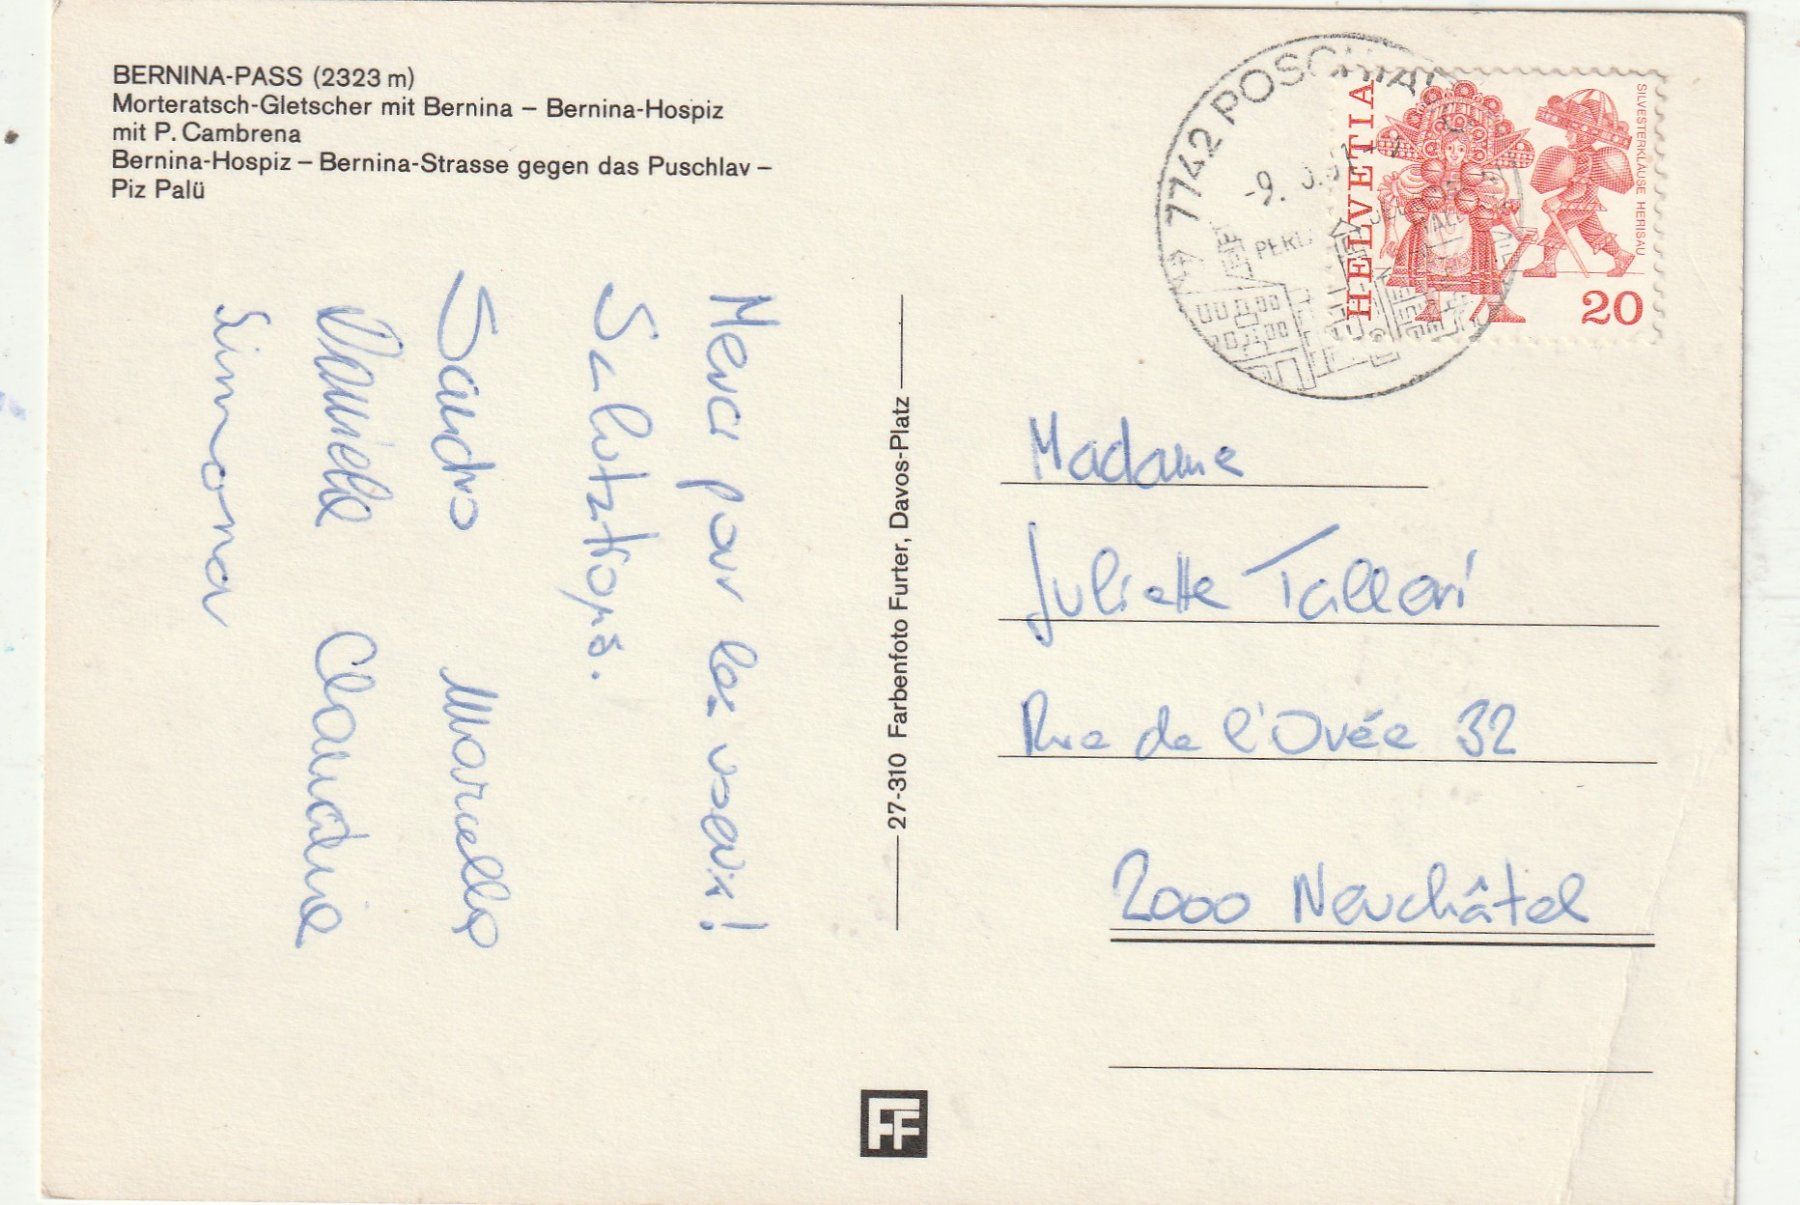 BERNINA-PASS (2323 m)
Morteratsch-Gletscher mit Bernina – Bernina-Hospiz
mit P. Cambrena
Bernina-Hospiz – Bernina-Strasse gegen das Puschlav –
Piz Palü
Merci pour les voeux!
Salutztions.
Sandro Marcella
Daniela Claudine
Simona
27-310 Farbenfoto Furter, Davos-Platz
7742 POSCHIAVO
-9.
HELVETIA
SILVESTERKLÄUSE HERISAU
20
Madame
Juliette Talleri
Rue de l'Ovée 32
2000 Neuchâtel
FF